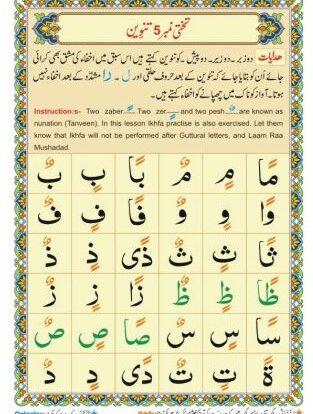 تختی نمبر 5 تنوین
ھدایات دو زبر۔ دو زیر۔ دو پیش کو تنوین کہتے ہیں اس سبق میں اخفاء کی مشق بھی کرائی
جائے اُن کو بتایا جائے کہ تنوین کے بعد حروف حلقی اور ل ۔ را مشدّد کے بعد اخفاء نہیں
ہوتا۔ آواز کو ناک میں چھپانے کو اخفاء کہتے ہیں۔
Instruction:s- Two zaber Two zer and two pesh are known as
nunation (Tanveen). In this lesson Ikhfa practise is also exercised. Let them
know that Ikhfa will not be performed after Guttural letters, and Laam Raa
Mushadad.
مًا مٍ مٌ بًا بٍ بٌ
وًا وٍ وٌ فًا فٍ فٌ
ثًا ثٍ ثٌ ذًى ذٍ ذٌ
ظًا ظٍ ظٌ زًا زٍ زٌ
سًا سٍ سٌ صًا صٍ صٌ
ةً تٍ تٌ دًى دٍ دٌ